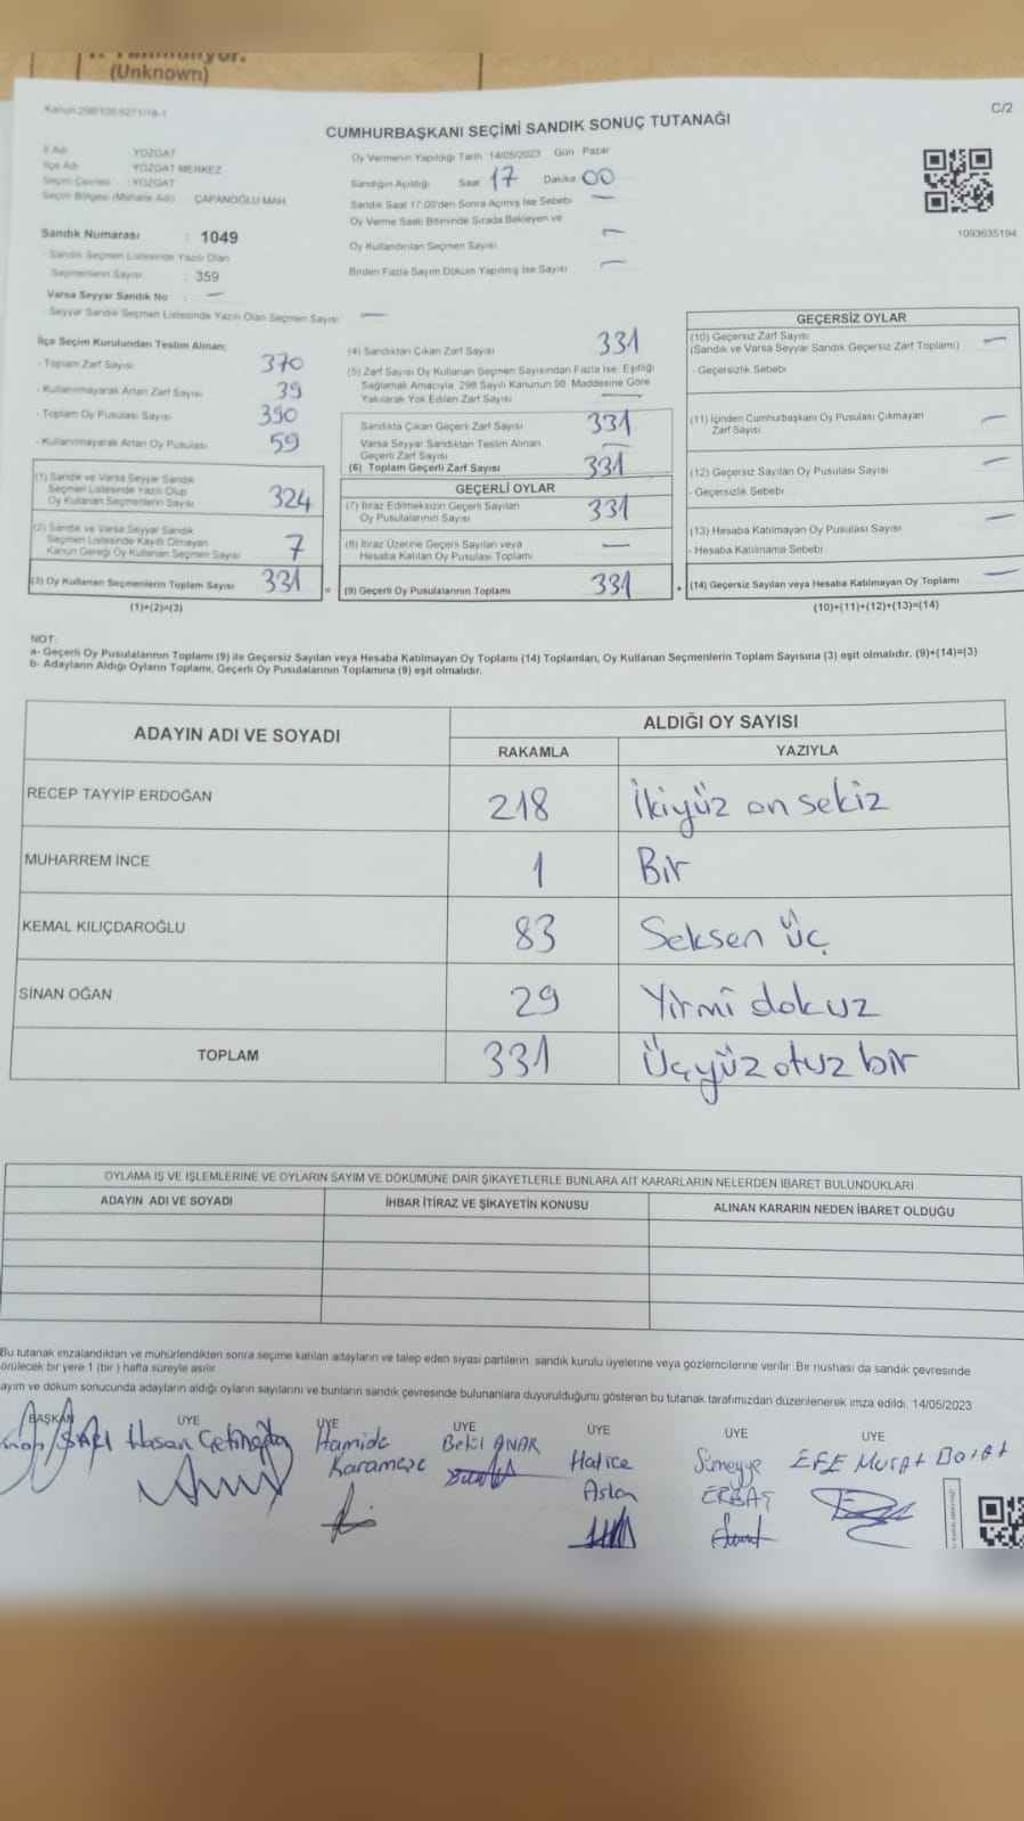 (Unknown)
C/2
CUMHURBAŞKANI SEÇİMİ SANDIK SONUÇ TUTANAĞI
İl Adı YOZGAT
İlçe Adı YOZGAT MERKEZ
Seçim Çevresi : YOZGAT
Seçim Bölgesi (Mahalle Adı) ÇAPANOĞLU MAH.
Sandık Numarası : 1049
Sandık Seçmen Listesinde Yazılı Olan
Seçmenlerin Sayısı : 359
Varsa Seyyar Sandık No : —
Seyyar Sandık Seçmen Listesinde Yazılı Olan Seçmen Sayısı —
Oy Vermenin Yapıldığı Tarih 14/05/2023 Gün Pazar
Sandığın Açıldığı Saat 17 Dakika 00
Sandık Saat 17:00'den Sonra Açılmış İse Sebebi —
Oy Verme Saati Bitiminde Sırada Bekleyen ve
Oy Kullandırılan Seçmen Sayısı —
Birden Fazla Sayım Döküm Yapılmış İse Sayısı —
1093635194
İlçe Seçim Kurulundan Teslim Alınan;
- Toplam Zarf Sayısı 370
- Kullanılmayarak Artan Zarf Sayısı 39
- Toplam Oy Pusulası Sayısı 390
- Kullanılmayarak Artan Oy Pusulası 59
(1) Sandık ve Varsa Seyyar Sandık
Seçmen Listesinde Yazılı Olup
Oy Kullanan Seçmenlerin Sayısı 324
(2) Sandık ve Varsa Seyyar Sandık
Seçmen Listesinde Kayıtlı Olmayan
Kanun Gereği Oy Kullanan Seçmen Sayısı 7
(3) Oy Kullanan Seçmenlerin Toplam Sayısı 331
(1)+(2)=(3)
(4) Sandıktan Çıkan Zarf Sayısı 331
(5) Zarf Sayısı Oy Kullanan Seçmen Sayısından Fazla İse; Eşitliği
Sağlamak Amacıyla, 298 Sayılı Kanunun 98. Maddesine Göre
Yakılarak Yok Edilen Zarf Sayısı —
Sandıkta Çıkan Geçerli Zarf Sayısı 331
Varsa Seyyar Sandıktan Teslim Alınan
Geçerli Zarf Sayısı —
(6) Toplam Geçerli Zarf Sayısı 331
GEÇERLİ OYLAR
(7) İtiraz Edilmeksizin Geçerli Sayılan
Oy Pusulalarının Sayısı 331
(8) İtiraz Üzerine Geçerli Sayılan veya
Hesaba Katılan Oy Pusulası Toplamı —
= (9) Geçerli Oy Pusulalarının Toplamı 331
GEÇERSİZ OYLAR
(10) Geçersiz Zarf Sayısı
(Sandık ve Varsa Seyyar Sandık Geçersiz Zarf Toplamı) —
- Geçersizlik Sebebi
(11) İçinden Cumhurbaşkanı Oy Pusulası Çıkmayan
Zarf Sayısı —
(12) Geçersiz Sayılan Oy Pusulası Sayısı —
- Geçersizlik Sebebi
(13) Hesaba Katılmayan Oy Pusulası Sayısı —
- Hesaba Katılmama Sebebi
+ (14) Geçersiz Sayılan veya Hesaba Katılmayan Oy Toplamı —
(10)+(11)+(12)+(13)=(14)
NOT:
a- Geçerli Oy Pusulalarının Toplamı (9) ile Geçersiz Sayılan veya Hesaba Katılmayan Oy Toplamı (14) Toplamları, Oy Kullanan Seçmenlerin Toplam Sayısına (3) eşit olmalıdır. (9)+(14)=(3)
b- Adayların Aldığı Oyların Toplamı, Geçerli Oy Pusulalarının Toplamına (9) eşit olmalıdır.
ADAYIN ADI VE SOYADI ALDIĞI OY SAYISI
RAKAMLA YAZIYLA
RECEP TAYYİP ERDOĞAN 218 İkiyüz on sekiz
MUHARREM İNCE 1 Bir
KEMAL KILIÇDAROĞLU 83 Seksen üç
SİNAN OĞAN 29 Yirmi dokuz
TOPLAM 331 Üçyüz otuz bir
OYLAMA İŞ VE İŞLEMLERİNE VE OYLARIN SAYIM VE DÖKÜMÜNE DAİR ŞİKAYETLERLE BUNLARA AİT KARARLARIN NELERDEN İBARET BULUNDUKLARI
ADAYIN ADI VE SOYADI İHBAR İTİRAZ VE ŞİKAYETİN KONUSU ALINAN KARARIN NEDEN İBARET OLDUĞU
Bu tutanak imzalandıktan ve mühürlendikten sonra seçime katılan adayların ve talep eden siyasi partilerin, sandık kurulu üyelerine veya gözlemcilerine verilir. Bir nüshası da sandık çevresinde
görülecek bir yere 1 (bir) hafta süreyle asılır.
ayım ve döküm sonucunda adayların aldığı oyların sayılarını ve bunların sandık çevresinde bulunanlara duyurulduğunu gösteren bu tutanak tarafımızdan düzenlenerek imza edildi. 14/05/2023
BAŞKAN ÜYE ÜYE ÜYE ÜYE ÜYE ÜYE
Hasan Çetinoğlu Hamide Bekil ANAR Halice Sümeyye EFE Murat
Karameşe Aslan ERBAŞ